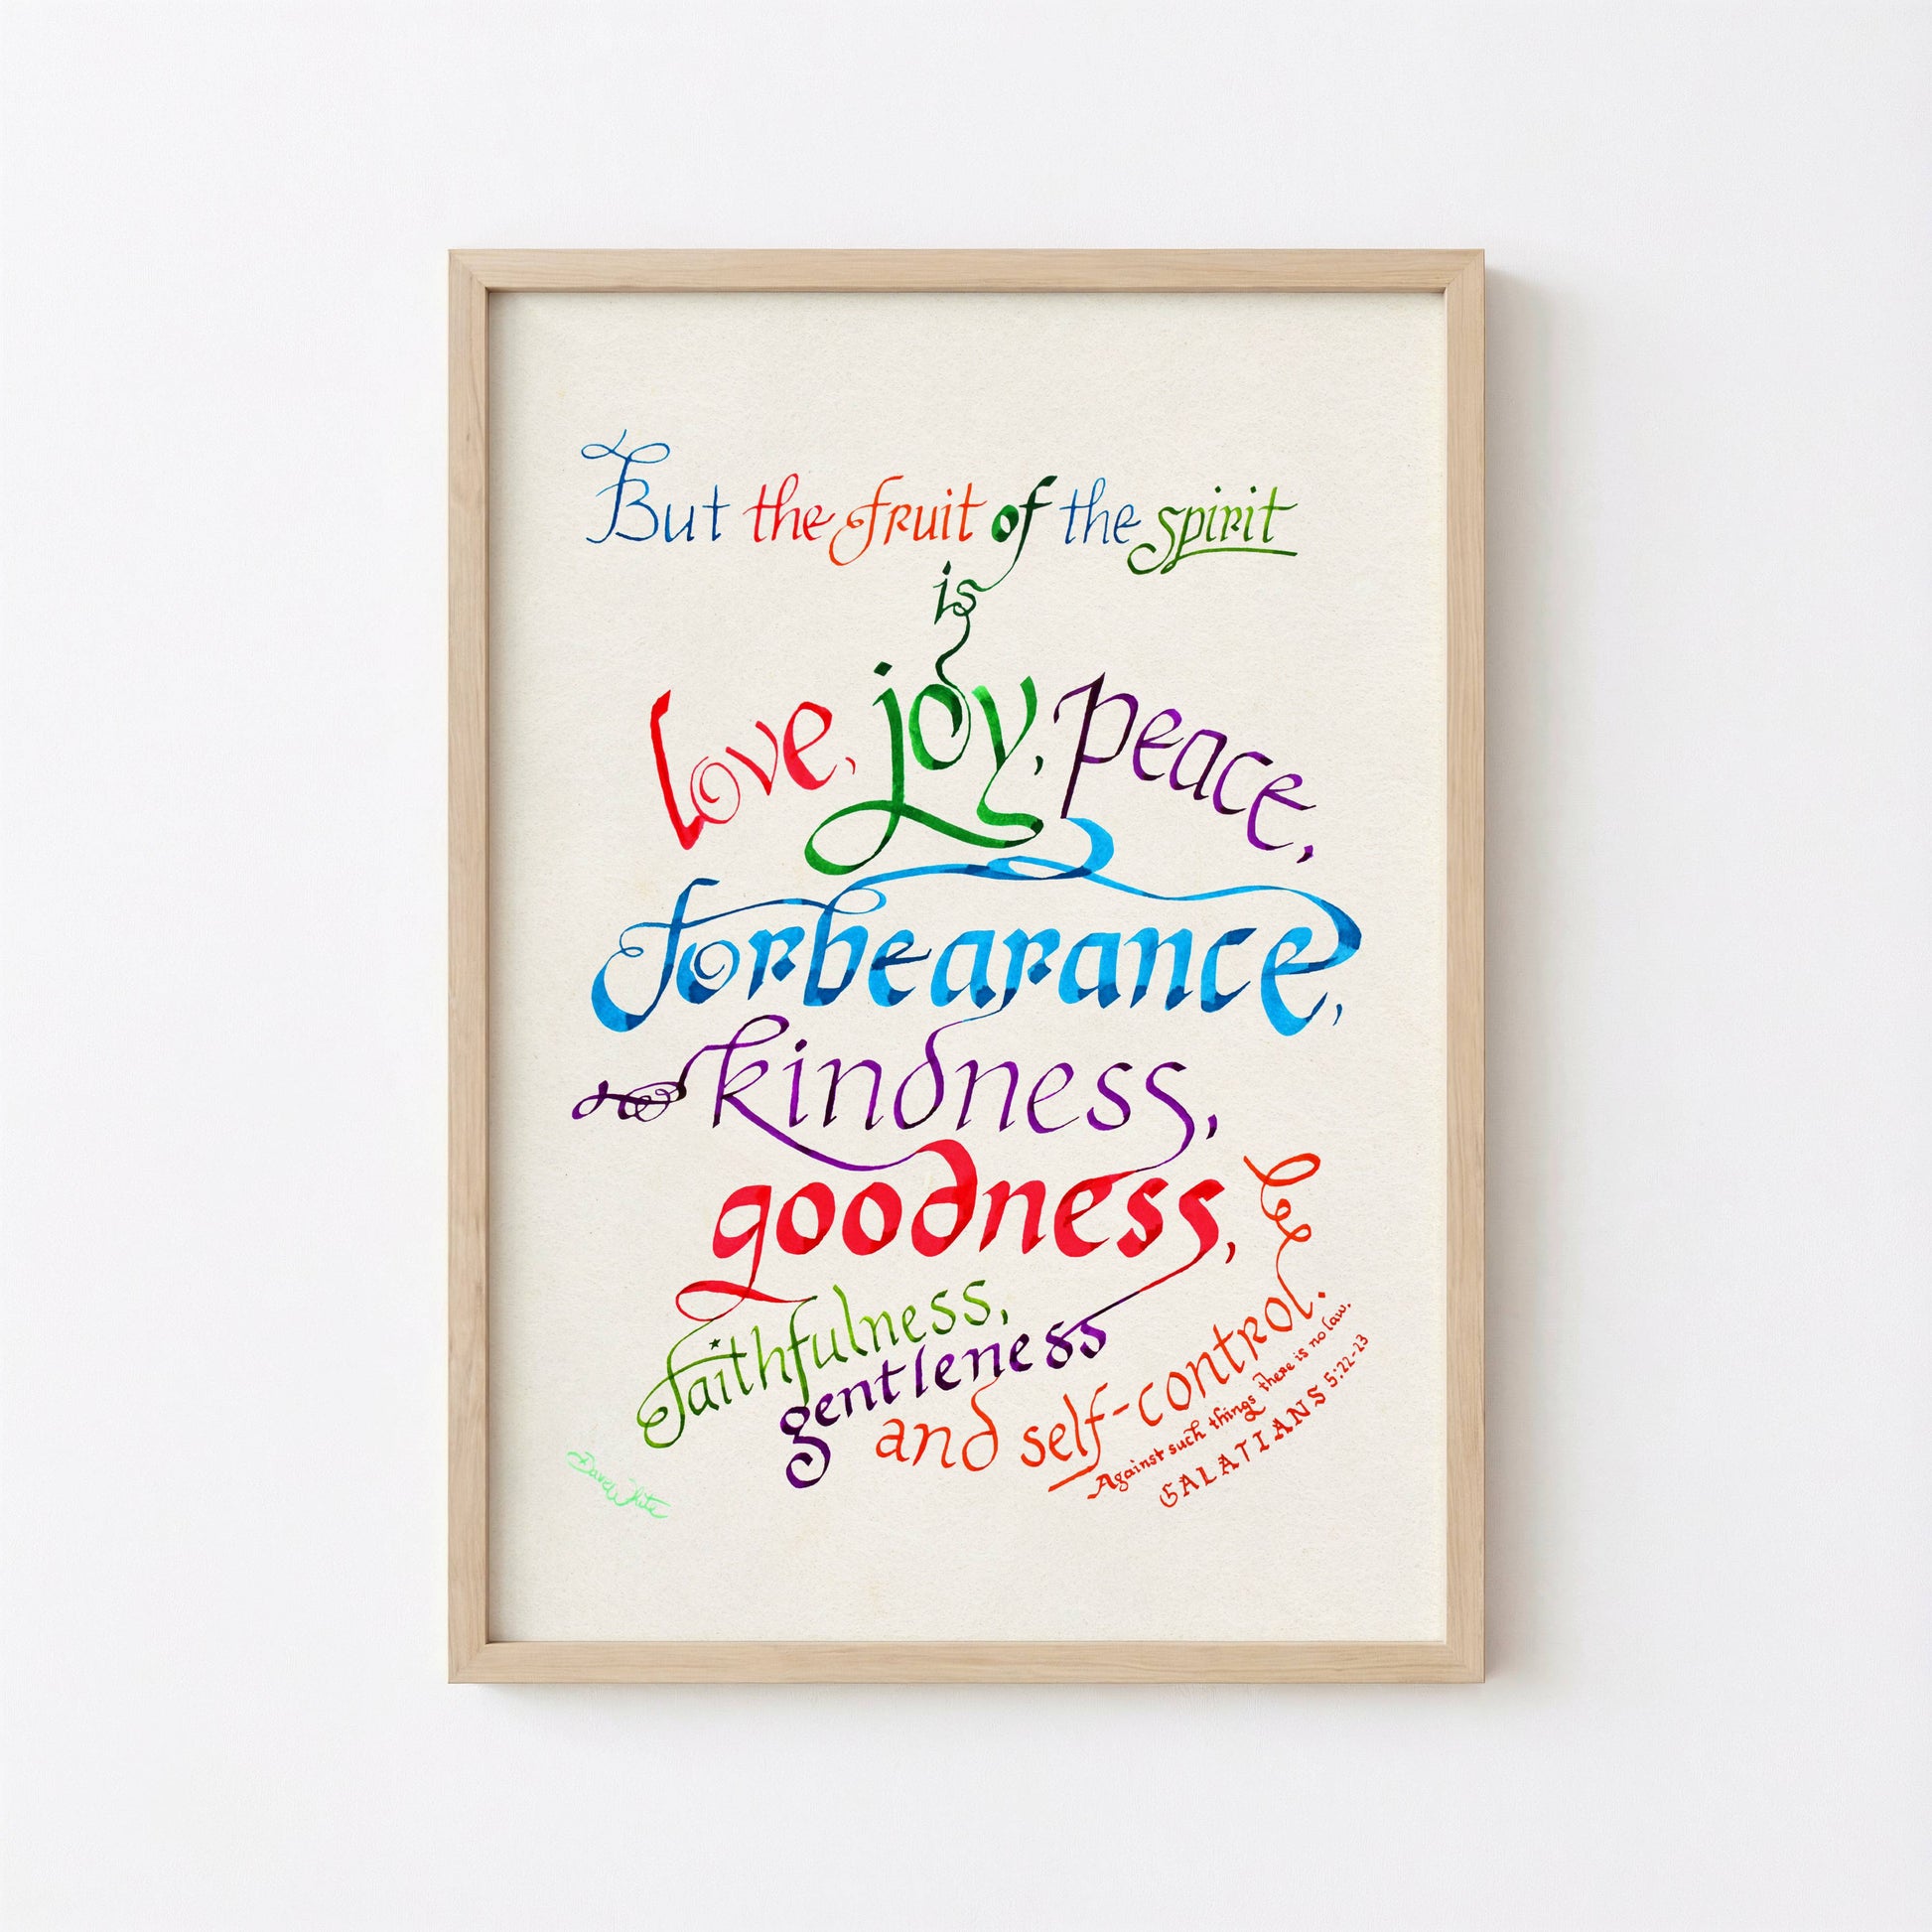 But the fruit of the spirit
is
love, joy, peace,
forbearance,
kindness,
goodness,
faithfulness,
gentleness
and self-control.
Against such things there is no law.
GALATIANS 5:22-23
Dave White